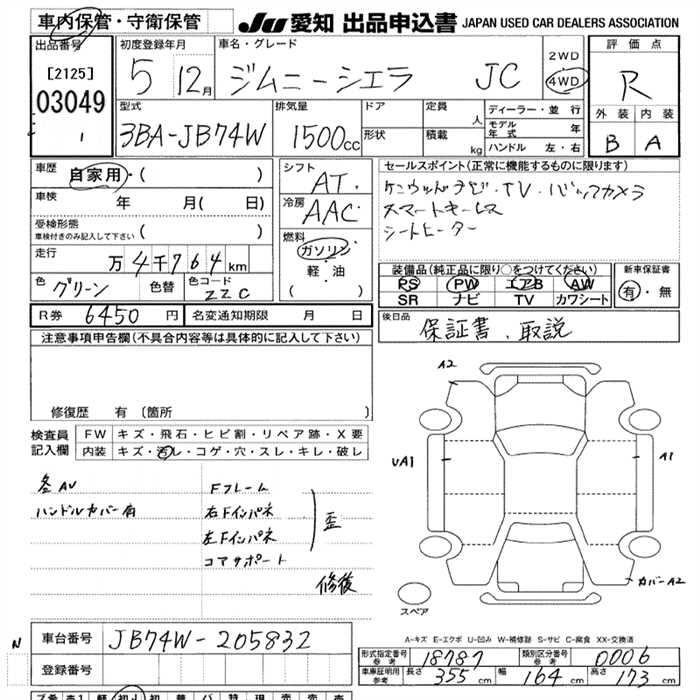 車内保管・守衛保管
JU 愛知 出品申込書 JAPAN USED CAR DEALERS ASSOCIATION
出品番号
[2125]
03049
1
初度登録年月
5 12月
車名・グレード
ジムニーシエラ JC
2WD
4WD
評価点
R
外装 内装
B A
型式
3BA-JB74W
排気量
1500cc
ドア
形状
定員 人
積載 kg
ディーラー・並行
モデル年式 年
ハンドル 左・右
車歴
自家用・( )
車検 年 月( 日)
受検形態
車検付きのみ記入して下さい ( )
走行
万4千764km
色 グリーン 色替 色コード ZZC
シフト
AT
冷房
AAC
燃料
ガソリン
・軽・油
( )
セールスポイント(正常に機能するものに限ります)
ケンウッドナビ・TV・バックカメラ
スマートキーレス
シートヒーター
装備品(純正品に限り○をつけてください)
PS PW エアB AW
SR ナビ TV カワシート
新車保証書
有・無
R券 6450円
名変通知期限 月 日
後日品
保証書、取説
注意事項申告欄(不具合内容等は具体的に記入して下さい)
修復歴 有〔箇所 〕
検査員記入欄
FW キズ・飛石・ヒビ割・リペア跡・X要
内装 キズ・汚レ・コゲ・穴・スレ・キレ・破レ
各AU
ハンドルカバー有
Fフレーム
右Fインパネ
左Fインパネ
コアサポート
歪
修復
A2
UA1
A1
カバーA2
スペア
A-キズ E-エクボ U-凹み W-補修跡 S-サビ C-腐食 XX-交換済
N
車台番号 JB74W-205832
登録番号
形式指定番号 参考 18787
類別区分番号 参考 0006
車庫証明用 参考 長さ 355cm 幅 164cm 高さ 173cm